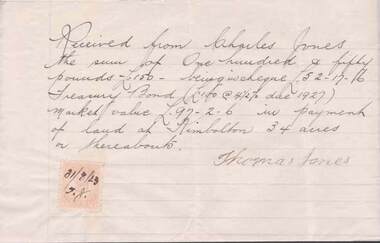 Received from Charles Jones
the sum of One hundred & fifty
pounds - £150 - being cheque £52-17-6
Treasury Bond (£100 @ 4½% due 1927)
Market value £97-2-6 in payment
of land at Kimbolton 34 acres
or thereabouts.
Thomas Jones
31/8/23
T.J.